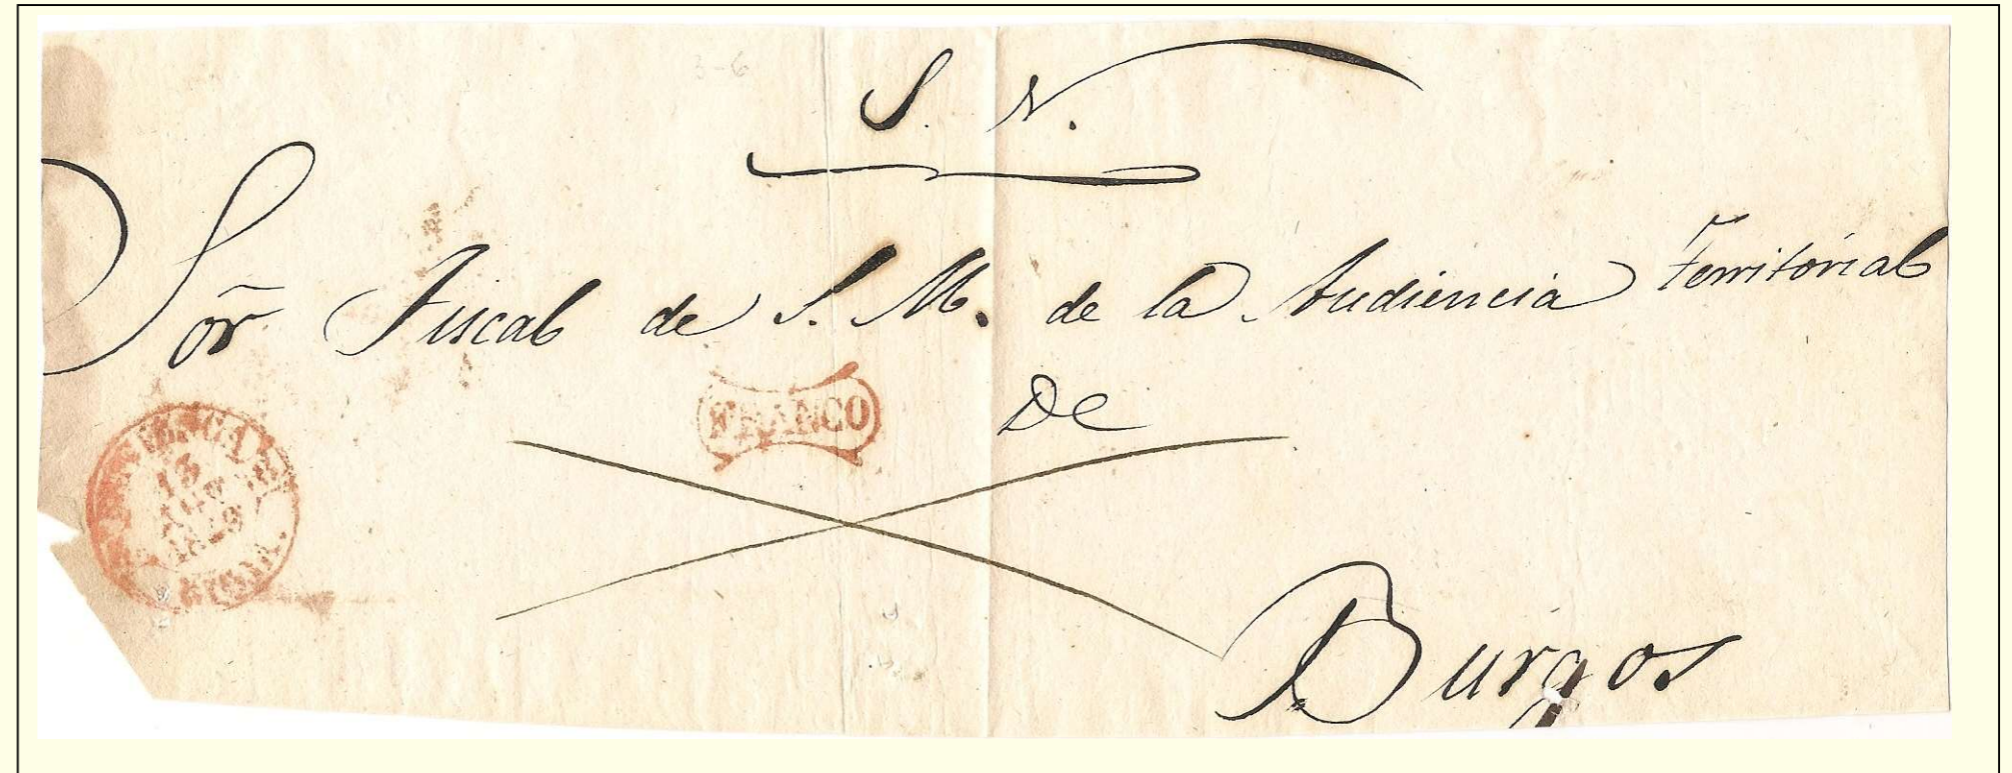 3-6
S. N.
Sor̃ Fiscal de S. M. de la Audiencia Territorial
De
FRANCO
13
Burgos